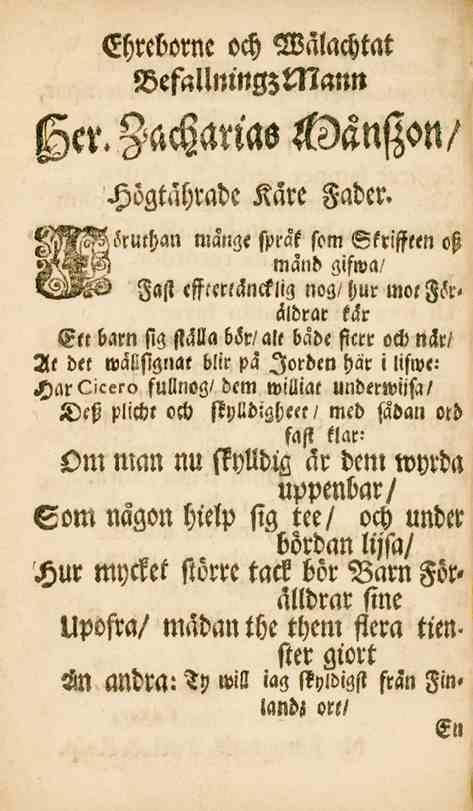 Ehreborne och Wälachtat
BefallningzMann
Her. Zacharias Månßon/
Högtährade Käre Fader.
Föruthan månge språk som Skrifften oß
månd gifwa/
Fast effterräncklig nog/ hur mot För-
äldrar kär
Ett barn sig ställa bör/ alt både fierr och när/
At det wälsignat blir på Jorden här i lifwe:
Har Cicero fullnog/ dem williat underwijsa/
Deß plicht och skylldigheet/ med sådan ord
fast klar:
Om man nu skylldig är dem wyrda
uppenbar/
Som någon hielp sig tee/ och under
bördan lijsa/
Hur mycket större tack bör Barn För-
älldrar sine
Upofra/ mädan the them flera tien-
ster giort
Än andra: Ty will iag skyldigst från Fin-
landz ort/
En